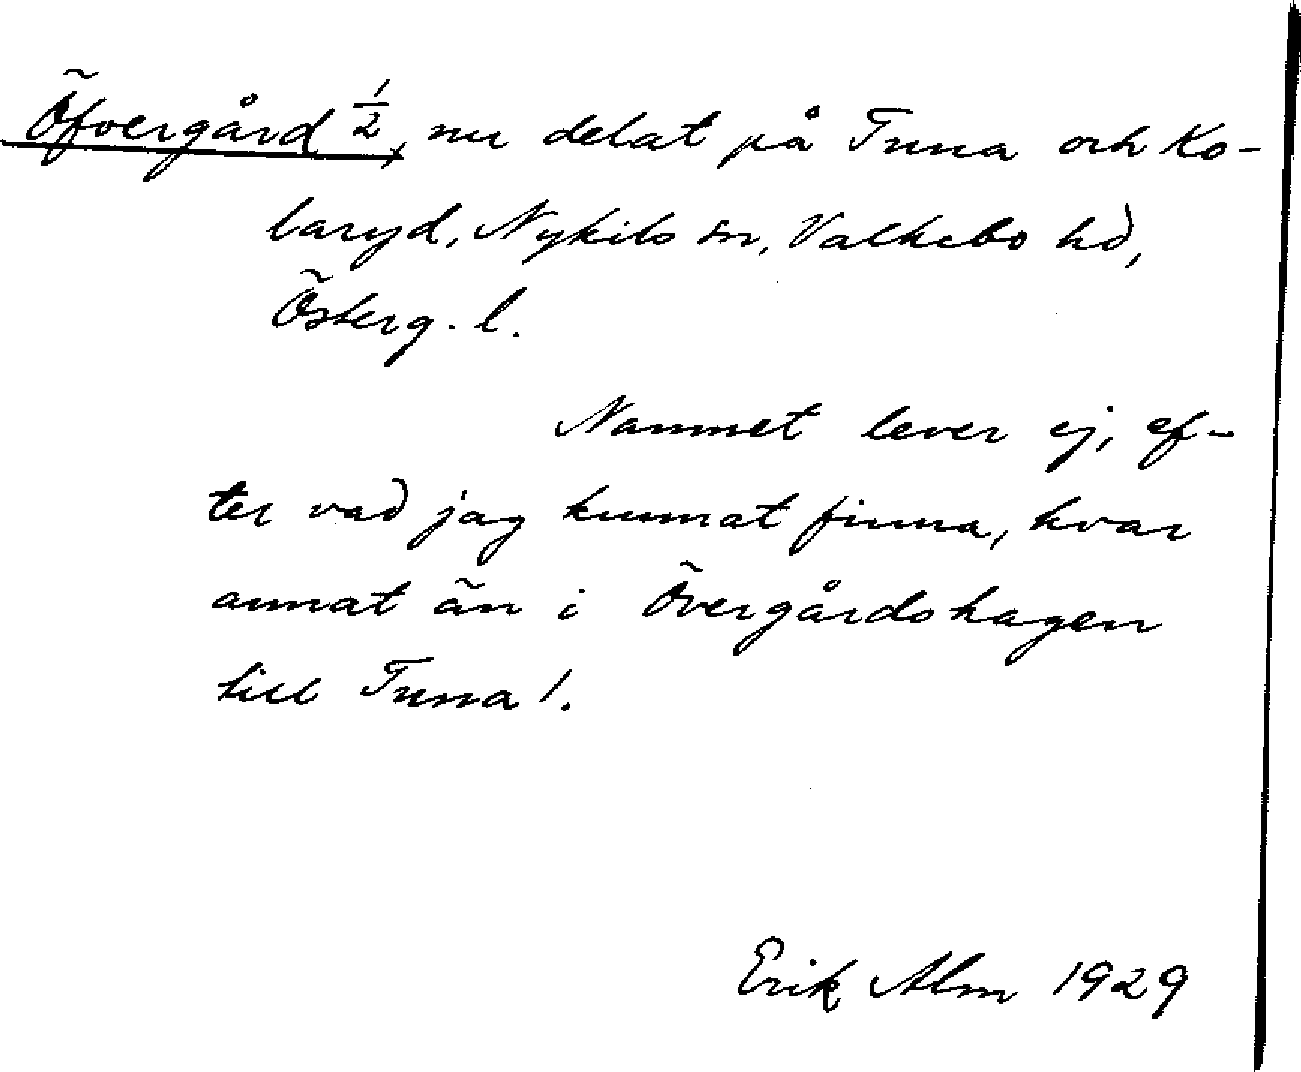 Öfvergård ½, nu delat på Tuna och Ko-
laryd, Nykils sn, Valkebo hd,
Österg. l.
Namnet lever ej, ef-
ter vad jag kunnat finna, hvar
annat än i Övergårdshagen
till Tuna 1.
Erik Alm 1929